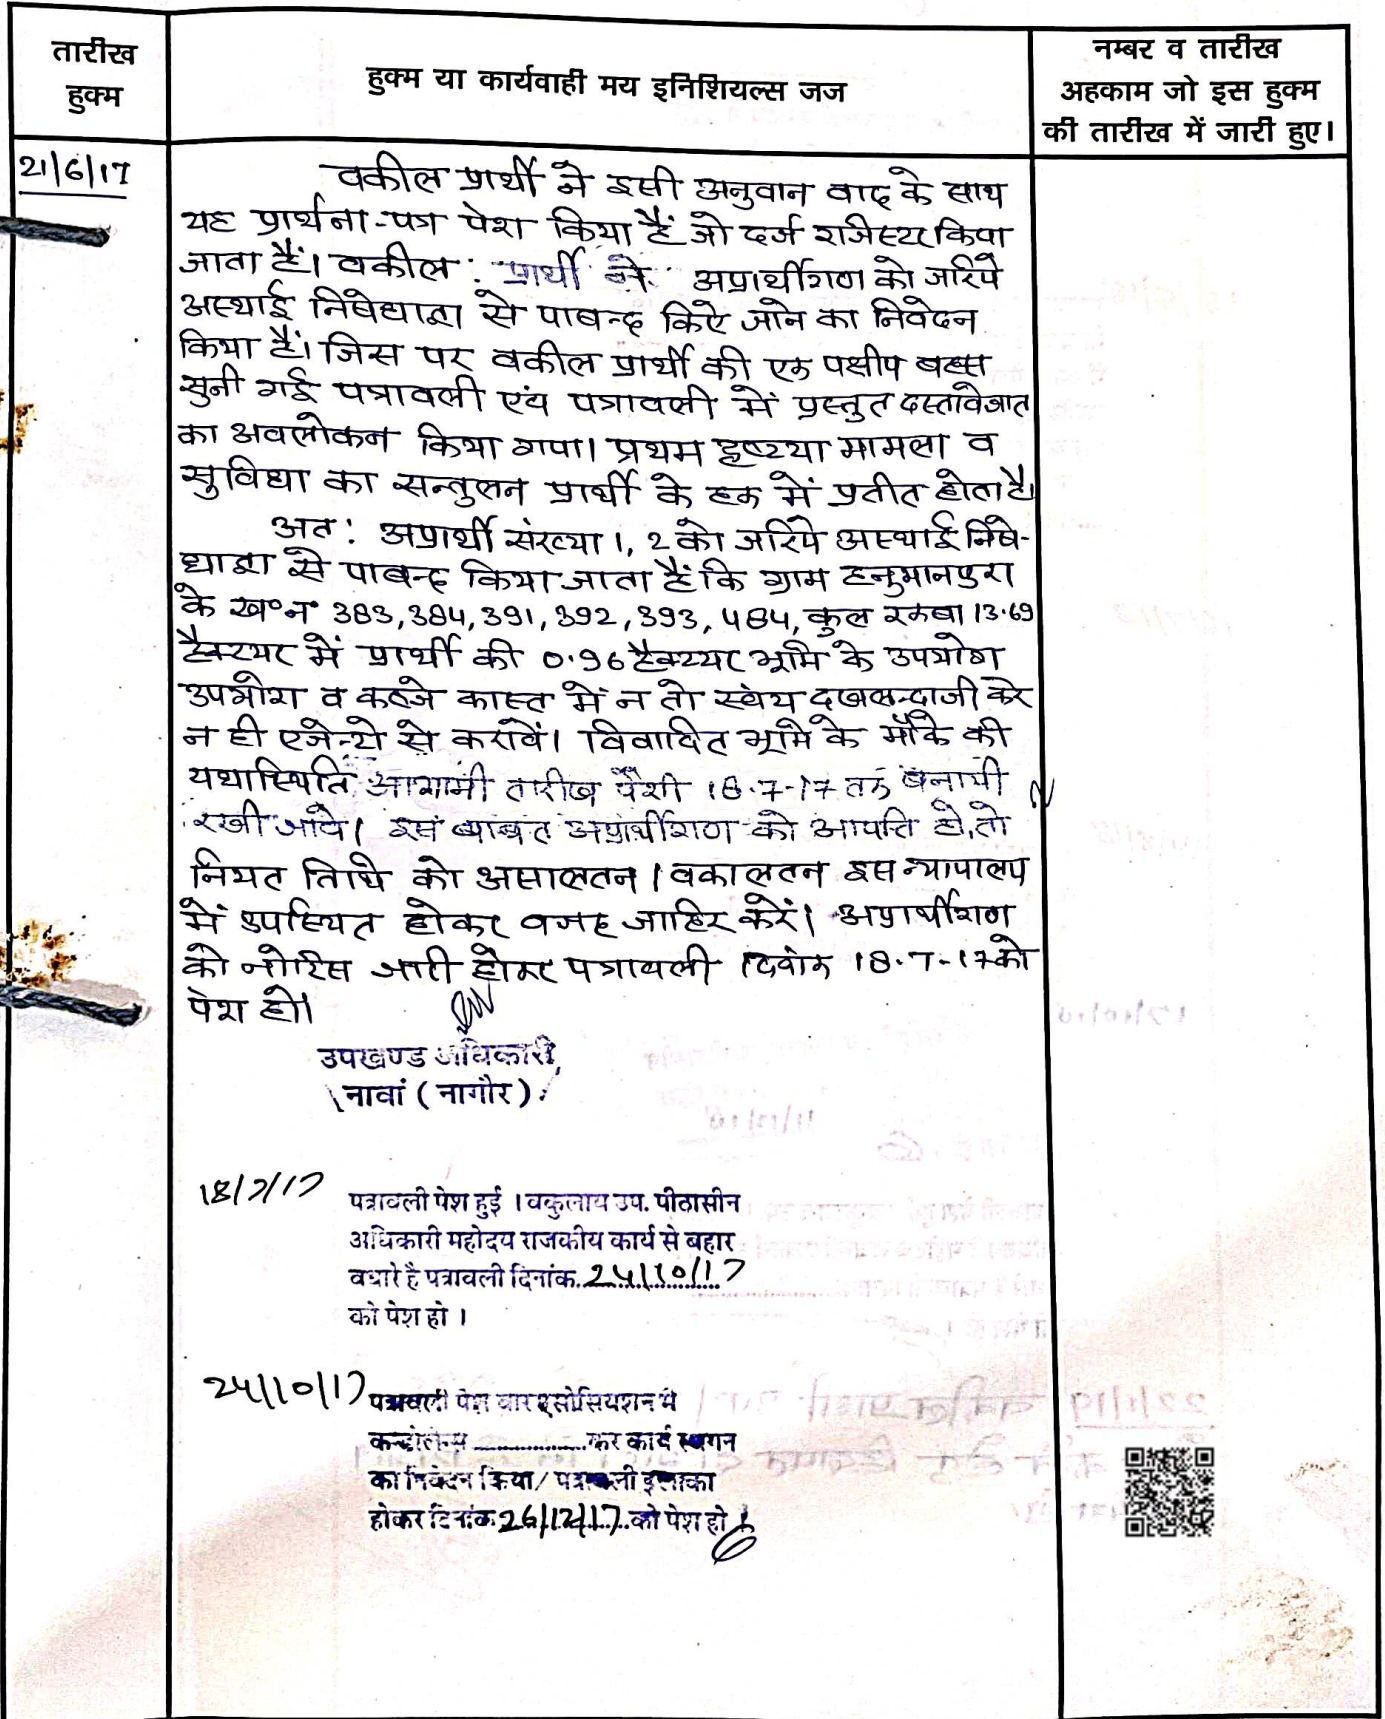 तारीख
हुक्म
हुक्म या कार्यवाही मय इनिशियल्स जज
नम्बर व तारीख
अहकाम जो इस हुक्म
की तारीख में जारी हुए।
21/6/17
वकील प्रार्थी ने इसी अनुवान वाद के साथ
यह प्रार्थना-पत्र पेश किया हैं जो दर्ज रजिस्टर किया
जाता हैं। वकील प्रार्थी ने अप्रार्थीगण को जरिये
अस्थाई निषेधाज्ञा से पाबन्द किए जाने का निवेदन
किया हैं। जिस पर वकील प्रार्थी की एक पक्षीय बहस
सुनी गई पत्रावली एंव पत्रावली में प्रस्तुत दस्तावेजात
का अवलोकन किया गया। प्रथम दृष्टया मामला व
सुविधा का सन्तुलन प्रार्थी के हक में प्रतीत होता है।
अत: अप्रार्थी संख्या 1, 2 को जरिये अस्थाई निषे-
धाज्ञा से पाबन्द किया जाता हैं कि ग्राम हनुमानपुरा
के ख० न० 383, 384, 391, 392, 393, 484, कुल रकबा 13.69
हैक्टयर में प्रार्थी की 0.96 हैक्टयर भूमि के उपयोग
उपभोग व कब्जे कास्त में न तो स्वंय दखलन्दाजी करे
न ही एजेन्टो से करावें। विवादित भूमि के मौके की
यथास्थिति आगामी तारीख पेशी 18-7-17 तक बनायी
रखी जावे। इस बाबत अप्रार्थीगण को आपत्ति हो, तो
नियत तिथि को असालतन / वकालतन इस न्यायालय
में उपस्थित होकर वजह जाहिर करें। अप्रार्थीगण
को नोटिस जारी होकर पत्रावली दिनांक 18-7-17 को
पेश हो।
उपखण्ड अधिकारी,
नावां ( नागौर )
18/7/17
पत्रावली पेश हुई । वकुलाय उप. पीठासीन
अधिकारी महोदय राजकीय कार्य से बहार
पधारे है पत्रावली दिनांक 24/10/17
को पेश हो ।
24/10/17
पत्रावली पेश बार एसोसियशन मे
कन्डोलेन्स ................कर कार्य स्थगन
का निवेदन किया/ पत्रावली इलाका
होकर दिनांक 26/12/17 को पेश हो